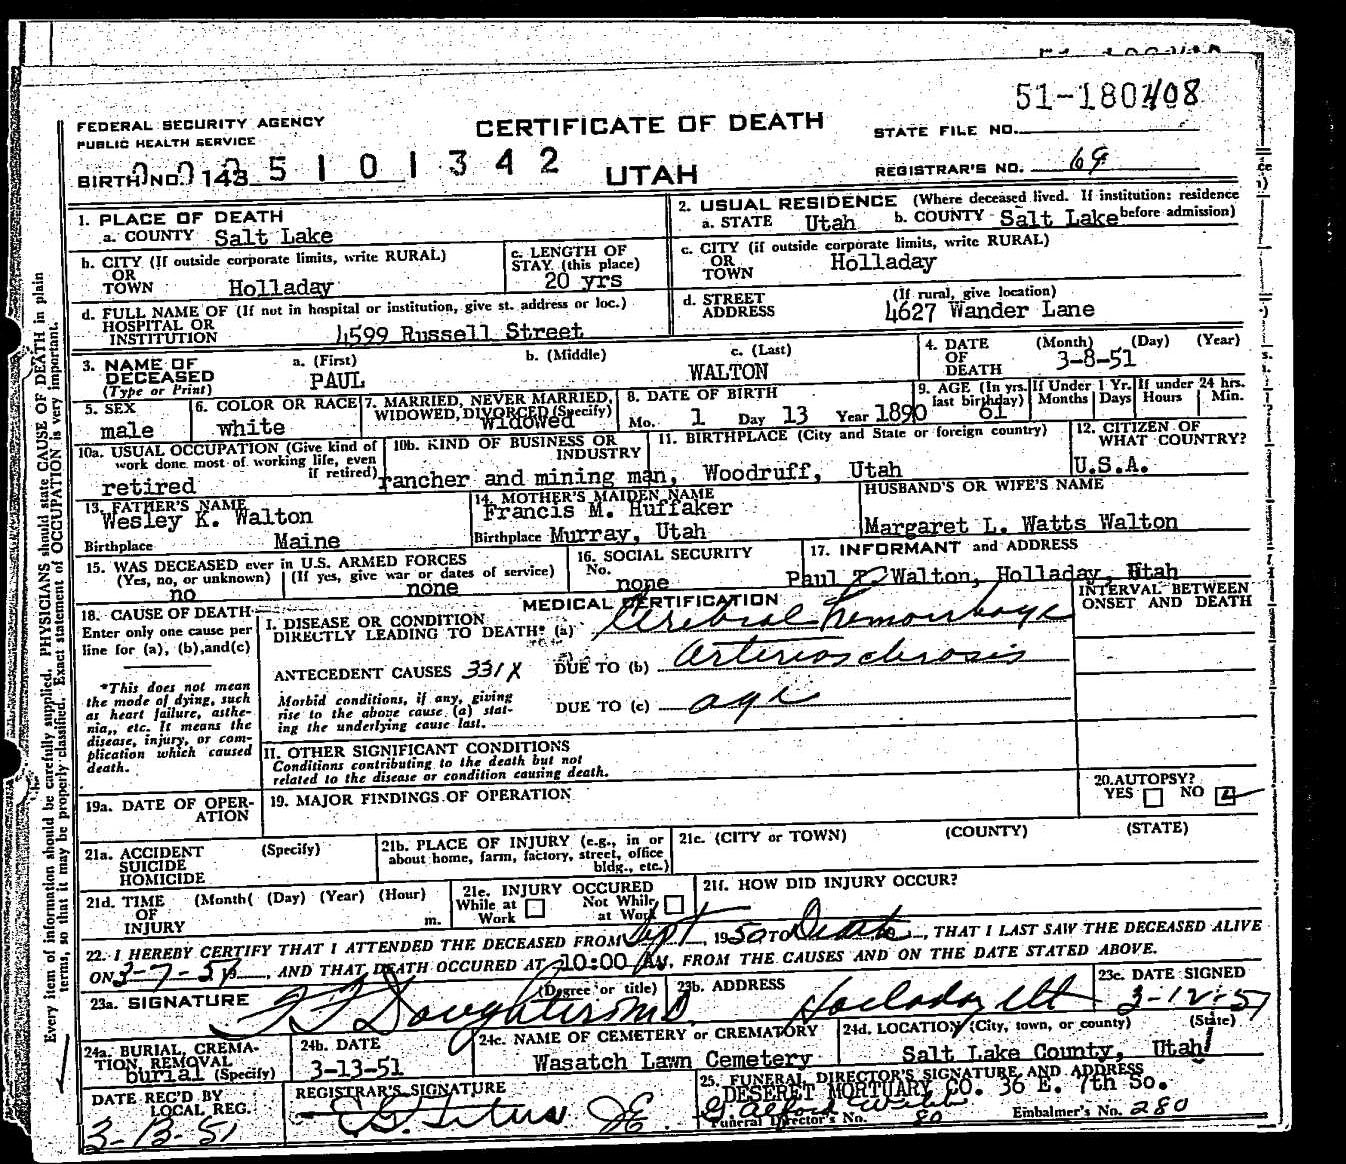 51-180408
FEDERAL SECURITY AGENCY
PUBLIC HEALTH SERVICE
CERTIFICATE OF DEATH
STATE FILE NO.
BIRTH NO. 143 5 1 0 1 3 4 2
UTAH
REGISTRAR'S NO. 69
1. PLACE OF DEATH
a. COUNTY Salt Lake
2. USUAL RESIDENCE (Where deceased lived. If institution: residence before admission)
a. STATE Utah b. COUNTY Salt Lake
b. CITY (If outside corporate limits, write RURAL)
OR
TOWN Holladay
c. LENGTH OF
STAY (this place)
20 yrs
c. CITY (if outside corporate limits, write RURAL)
OR
TOWN Holladay
d. FULL NAME OF (If not in hospital or institution, give st. address or loc.)
HOSPITAL OR
INSTITUTION 4599 Russell Street
d. STREET
ADDRESS
(If rural, give location)
4627 Wander Lane
3. NAME OF
DECEASED
(Type or Print)
a. (First) b. (Middle) c. (Last)
PAUL WALTON
4. DATE
OF
DEATH
(Month) (Day) (Year)
3-8-51
5. SEX
male
6. COLOR OR RACE
white
7. MARRIED, NEVER MARRIED,
WIDOWED, DIVORCED (Specify)
widowed
8. DATE OF BIRTH
Mo. 1 Day 13 Year 1890
9. AGE (In yrs.
last birthday)
61
If Under 1 Yr.
Months Days
If under 24 hrs.
Hours Min.
10a. USUAL OCCUPATION (Give kind of
work done most of working life, even
if retired)
retired
10b. KIND OF BUSINESS OR
INDUSTRY
rancher and mining man,
11. BIRTHPLACE (City and State or foreign country)
Woodruff, Utah
12. CITIZEN OF
WHAT COUNTRY?
U.S.A.
13. FATHER'S NAME
Wesley K. Walton
Birthplace Maine
14. MOTHER'S MAIDEN NAME
Francis M. Huffaker
Birthplace Murray, Utah
HUSBAND'S OR WIFE'S NAME
Margaret L. Watts Walton
15. WAS DECEASED ever in U.S. ARMED FORCES
(Yes, no, or unknown) (If yes, give war or dates of service)
no none
16. SOCIAL SECURITY
No.
none
17. INFORMANT and ADDRESS
Paul T. Walton, Holladay, Utah
MEDICAL CERTIFICATION
INTERVAL BETWEEN
ONSET AND DEATH
18. CAUSE OF DEATH
Enter only one cause per
line for (a), (b),and(c)
*This does not mean
the mode of dying, such
as heart failure, asthe-
nia,, etc. It means the
disease, injury, or com-
plication which caused
death.
I. DISEASE OR CONDITION
DIRECTLY LEADING TO DEATH* (a) Cerebral hemorrhage
ANTECEDENT CAUSES 331X DUE TO (b) arteriosclerosis
Morbid conditions, if any, giving
rise to the above cause (a) stat-
ing the underlying cause last.
DUE TO (c) age
II. OTHER SIGNIFICANT CONDITIONS
Conditions contributing to the death but not
related to the disease or condition causing death.
19a. DATE OF OPER-
ATION
19. MAJOR FINDINGS OF OPERATION
20. AUTOPSY?
YES NO
21a. ACCIDENT
SUICIDE
HOMICIDE
(Specify)
21b. PLACE OF INJURY (e.g., in or
about home, farm, factory, street, office
bldg., etc.)
21c. (CITY or TOWN) (COUNTY) (STATE)
21d. TIME
OF
INJURY
(Month( (Day) (Year) (Hour)
m.
21e. INJURY OCCURED
While at
Work
Not While
at Work
21f. HOW DID INJURY OCCUR?
22. I HEREBY CERTIFY THAT I ATTENDED THE DECEASED FROM Sept, 1950 TO Death, THAT I LAST SAW THE DECEASED ALIVE
ON 3-7-51, AND THAT DEATH OCCURED AT 10:00 A M, FROM THE CAUSES AND ON THE DATE STATED ABOVE.
23a. SIGNATURE (Degree or title)
23b. ADDRESS
Holladay Ut
23c. DATE SIGNED
3-12-51
24a. BURIAL, CREMA-
TION, REMOVAL
burial (Specify)
24b. DATE
3-13-51
24c. NAME OF CEMETERY or CREMATORY
Wasatch Lawn Cemetery
24d. LOCATION (City, town, or county) (State)
Salt Lake County, Utah
DATE REC'D BY
LOCAL REG.
3-13-51
REGISTRAR'S SIGNATURE
25. FUNERAL DIRECTOR'S SIGNATURE AND ADDRESS
DESERET MORTUARY CO. 36 E. 7th So.
Funeral Director's No. 80
Embalmer's No. 280
Every item of information should be carefully supplied. PHYSICIANS should state CAUSE OF DEATH in plain
terms, so that it may be properly classified. Exact statement of OCCUPATION is very important.